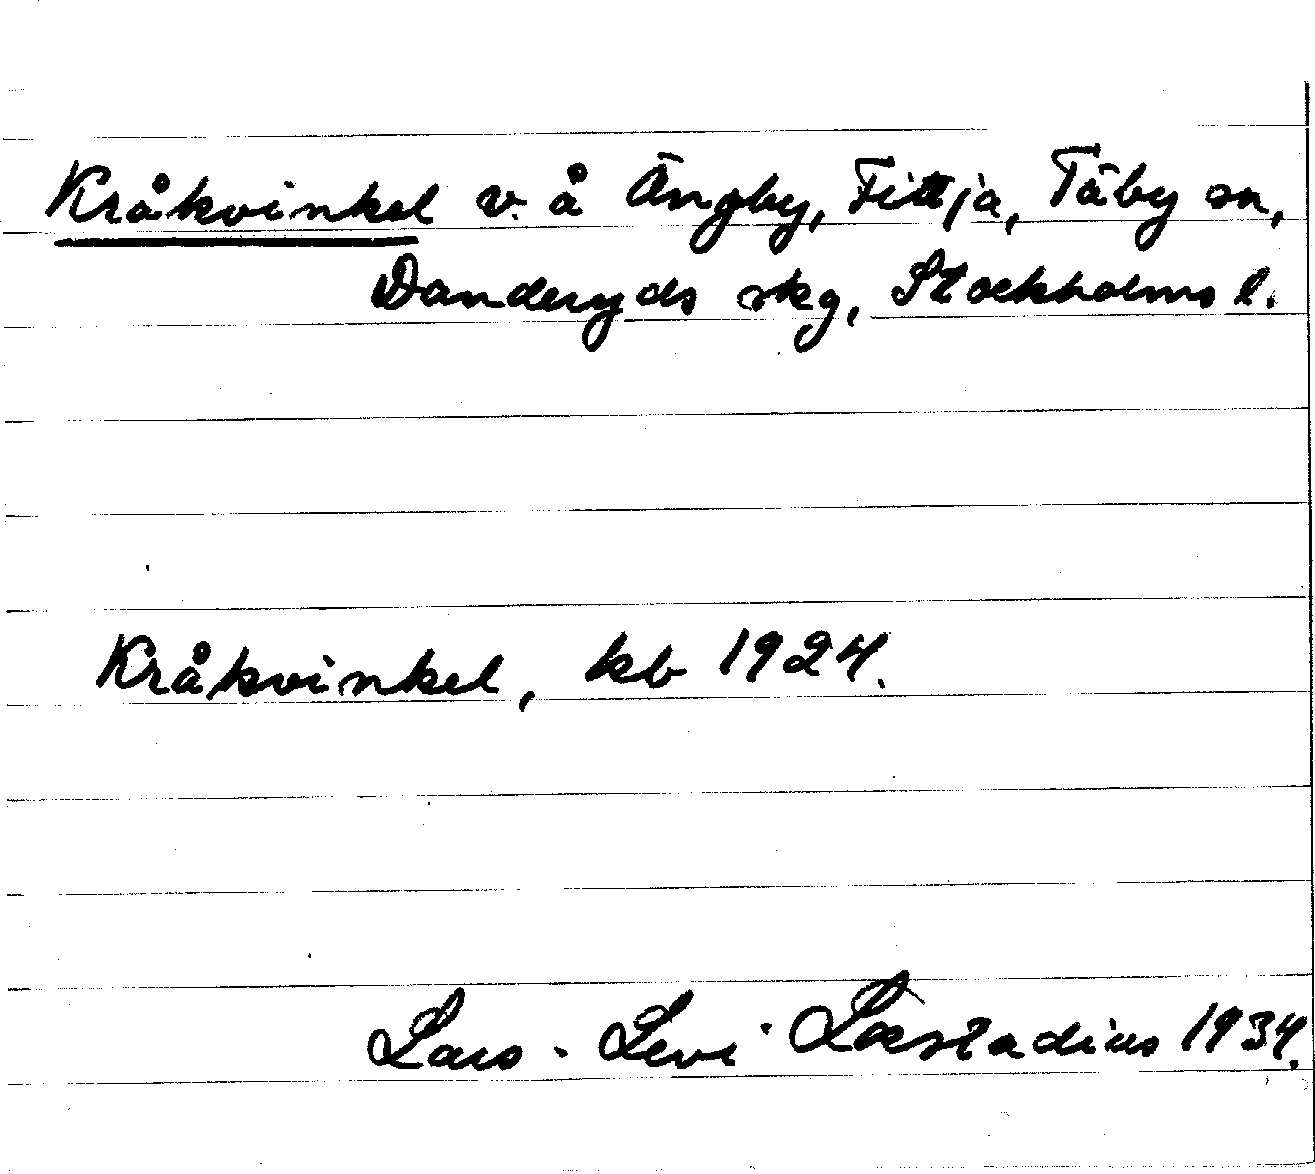 Kråkvinkel v. å Ängby, Fittja, Täby sn,
Danderyds skg, Stockholms l.
Kråkvinkel, kb 1924.
Lars-Levi Læstadius 1934.